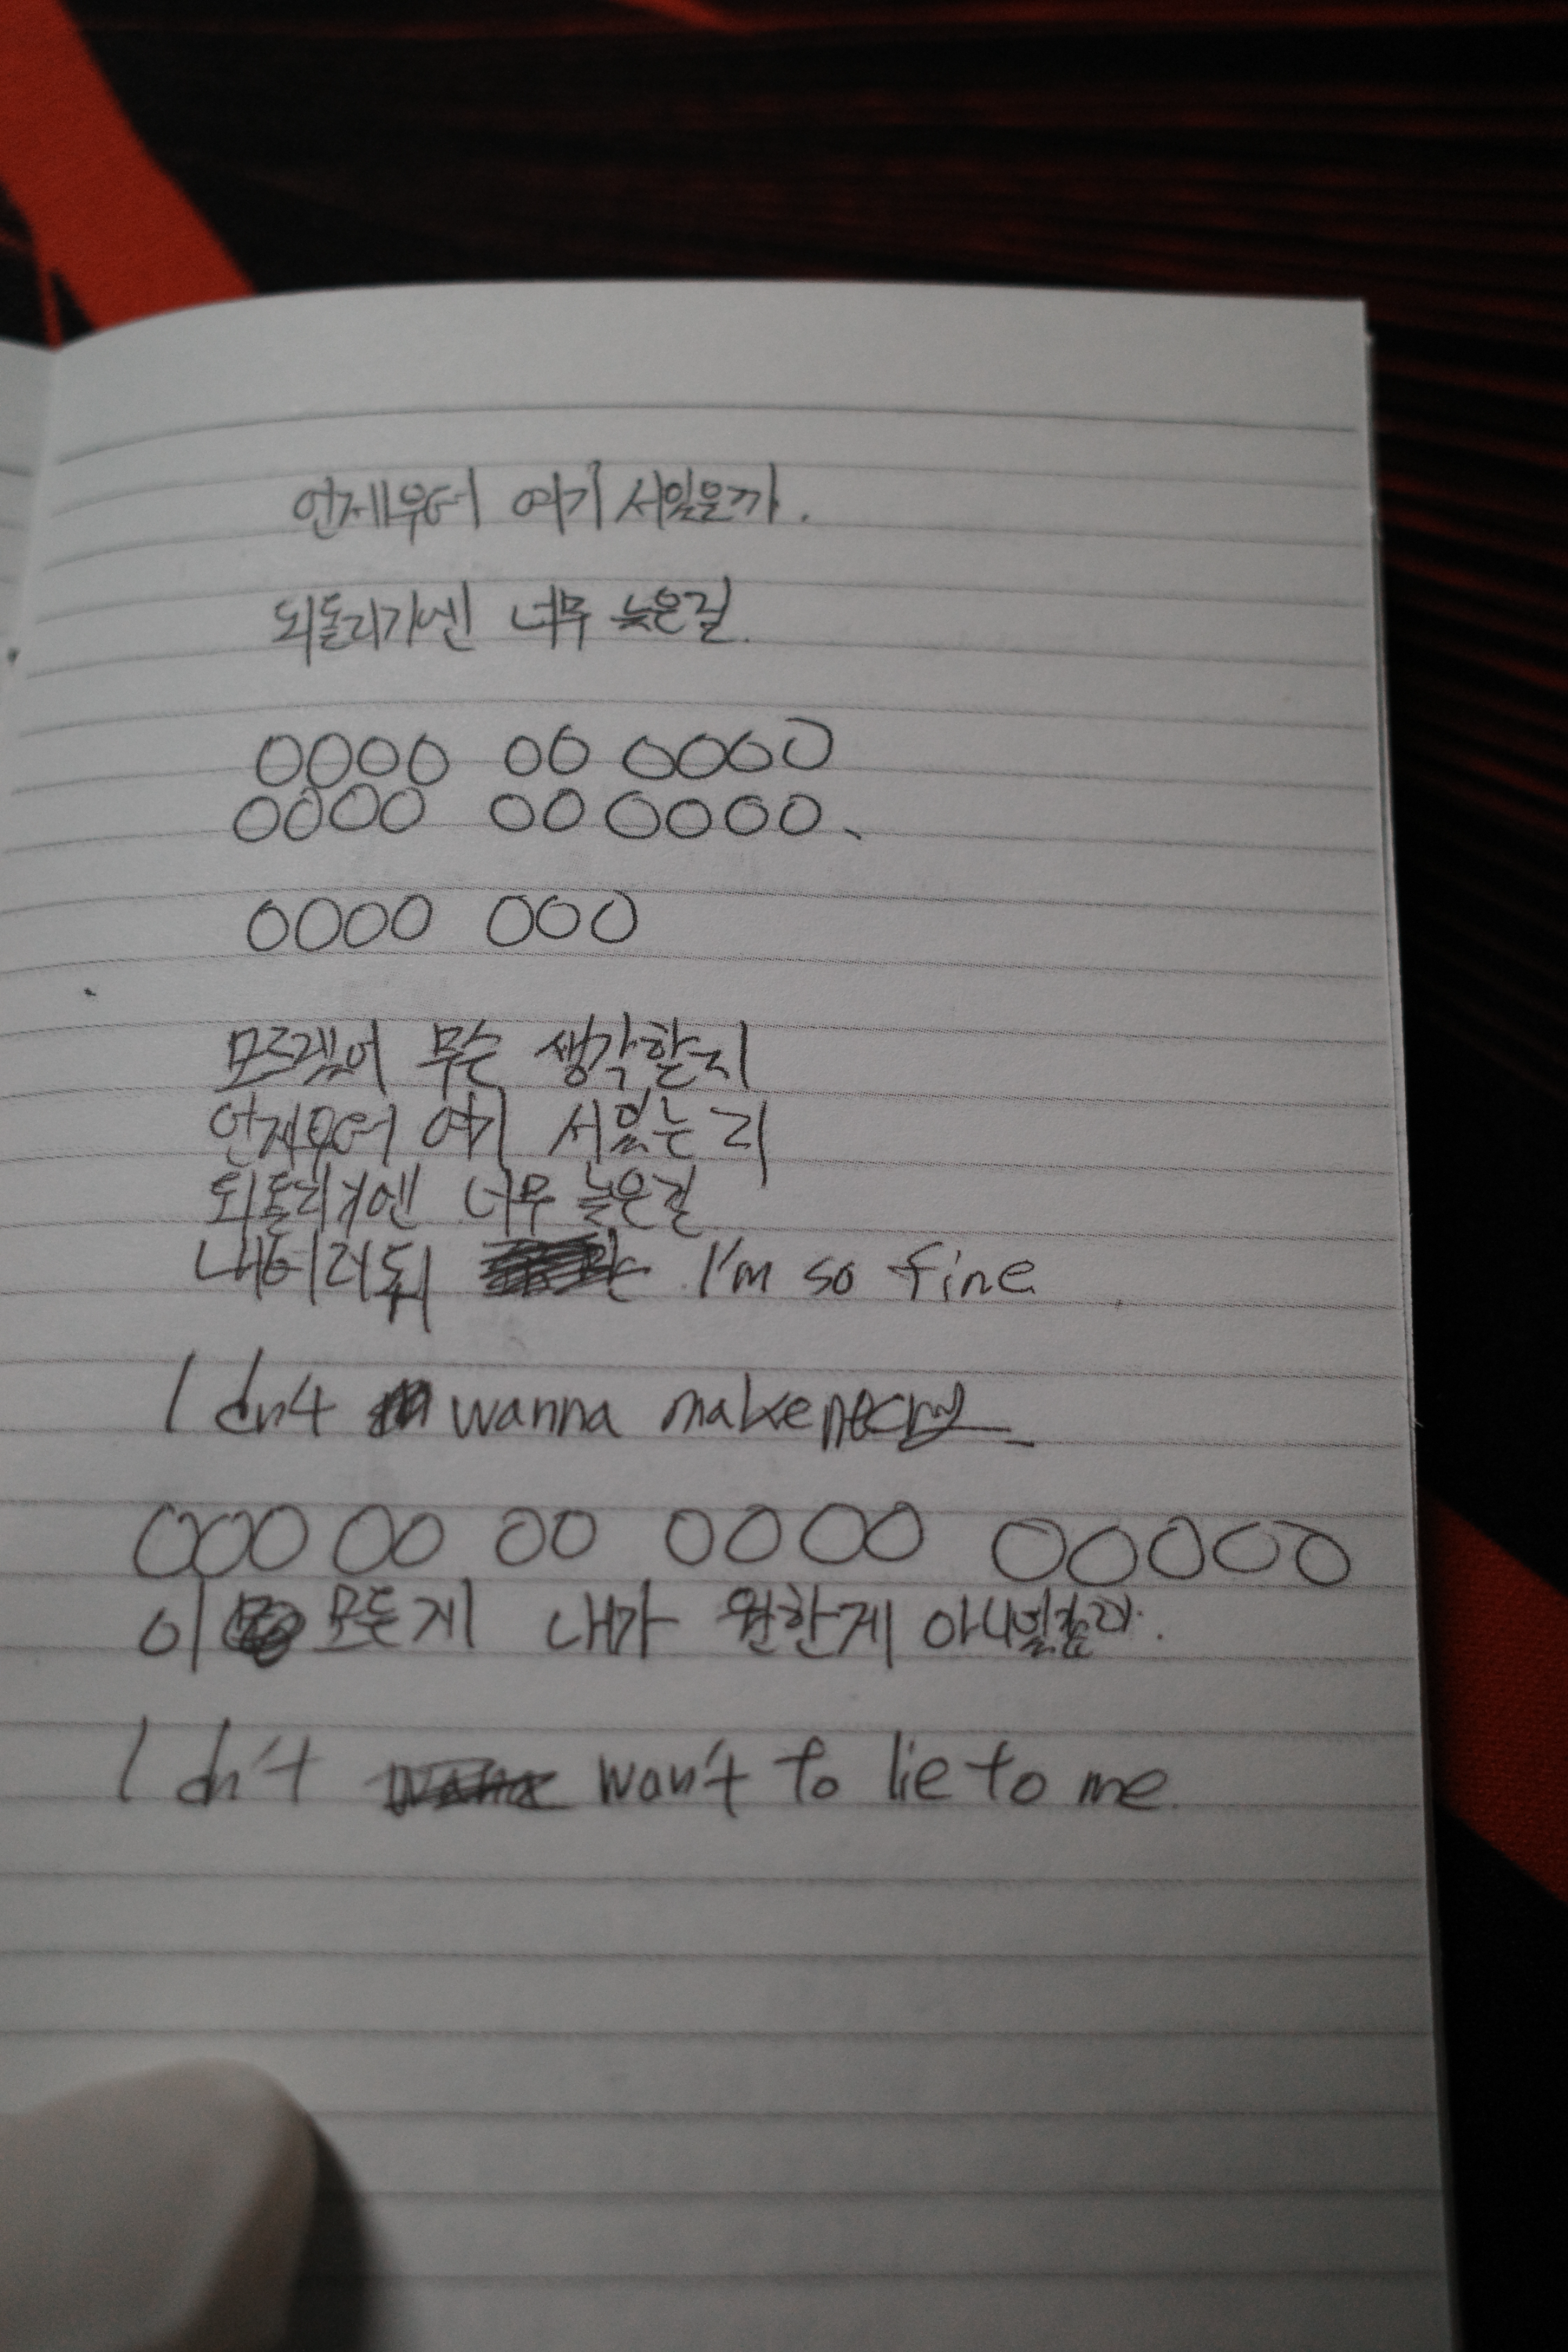 언제부터 여기 서있을까.
되돌리기엔 너무 늦은걸.
0000 00 00000
0000 00 0000.
0000 000
모르겠어 무슨 생각할지
언제부터 여기 서있는지
되돌리기엔 너무 늦은걸
내버려둬 I'm so fine
I dn't wanna make me cry
000 00 00 0000 00000
이 모든게 내가 원한게
I dn't wan't to lie to me.